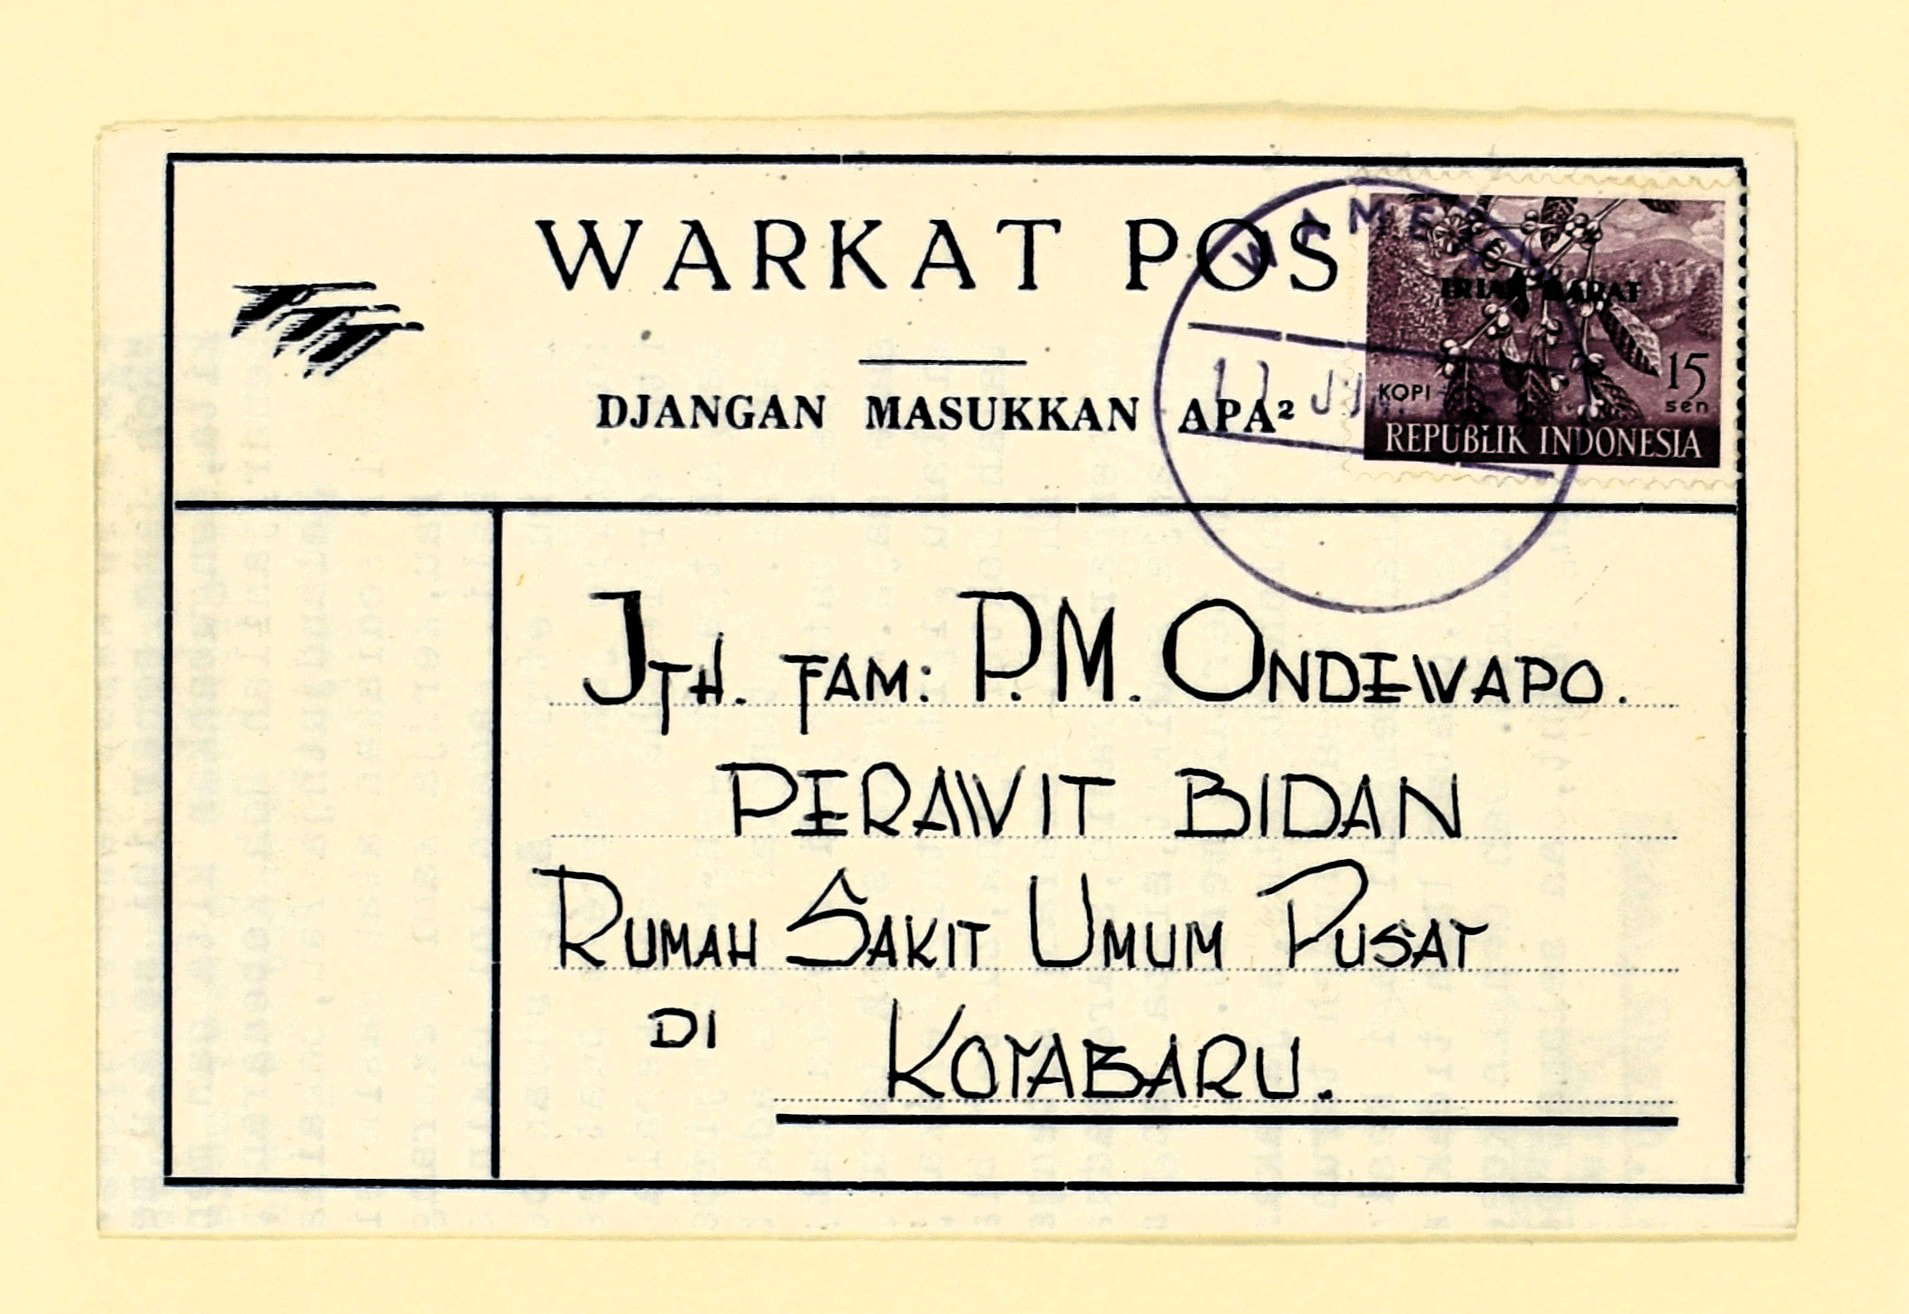 WARKAT POS
DJANGAN MASUKKAN APA²
IRIAN BARAT
KOPI
15
sen
REPUBLIK INDONESIA
JTH. FAM: P.M. ONDEWAPO.
PERAWIT BIDAN
RUMAH SAKIT UMUM PUSAT
DI KOTABARU.